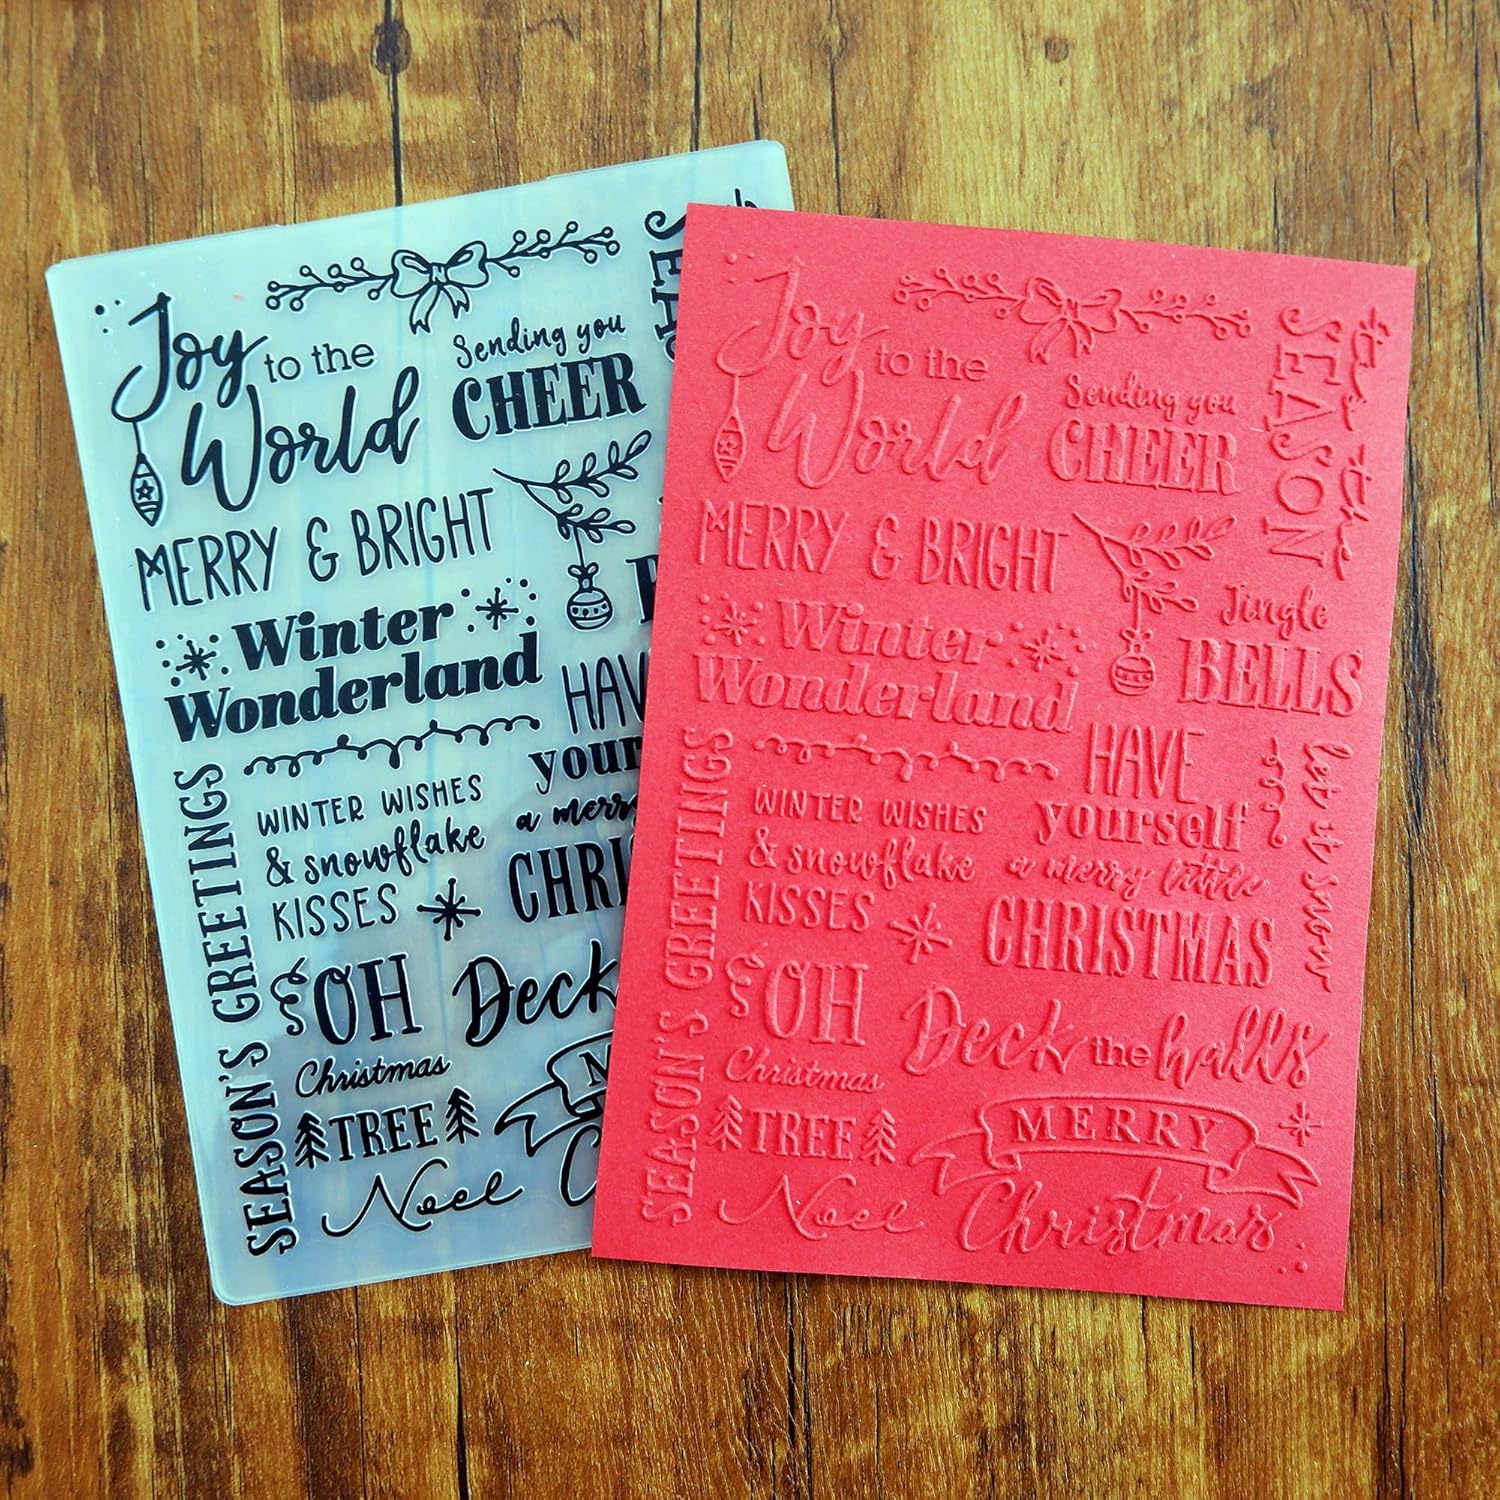 Joy
to the
World
Sending you
CHEER
SEAS
MERRY & BRIGHT
Winter
Wonderland
HAV
your
a merr
CHRI
SEASON'S GREETINGS
WINTER WISHES
& snowflake
KISSES
OH
Christmas
TREE
Deck
Noel
Joy
to the
World
Sending you
CHEER
tis the
SEASON
MERRY & BRIGHT
Jingle
BELLS
Winter
Wonderland
HAVE
yourself
a merry little
CHRISTMAS
let it snow
SEASON'S GREETINGS
WINTER WISHES
& snowflake
KISSES
OH
Christmas
TREE
Deck the halls
MERRY
Christmas
Noel